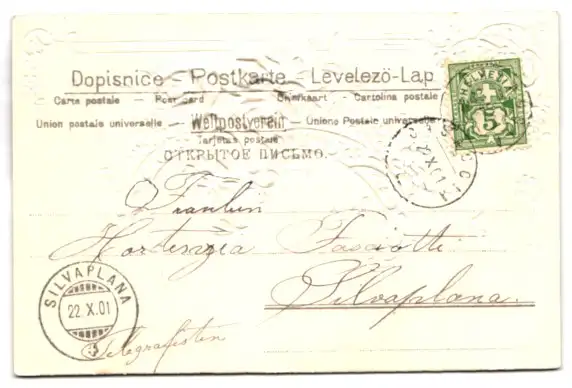 Dopisnice – Postkarte – Levelezö-Lap
Carte postale – Post card – Briefkaart – Cartolina postale
Union postale universelle – Weltpostverein – Unione Postale universale
Tarjetas postale
ОТКРЫТОЕ ПИСЬМО.
HELVETIA
5
22.X.01
Fräulein
Hortensia Fasciotti
Silvaplana.
SILVAPLANA
22.X.01
Telegrafisten